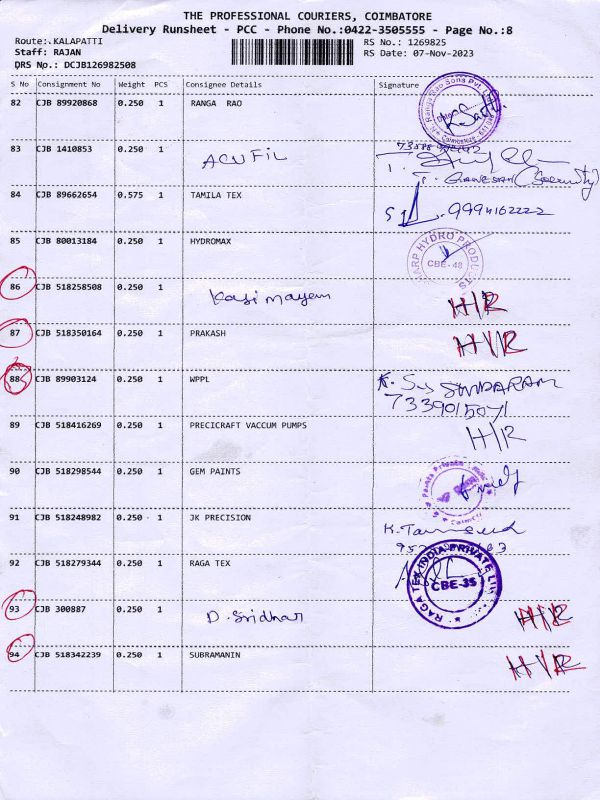 THE PROFESSIONAL COURIERS, COIMBATORE
Delivery Runsheet - PCC - Phone No.:0422-3505555 - Page No.:8
Route:.KALAPATTI
RS No.: 1269825
Staff: RAJAN
RS Date: 07-Nov-2023
DRS No.: DCJB126982508
S No Consignment No Weight PCS Consignee Details Signature
82 CJB 89920868 0.250 1 RANGA RAO
83 CJB 1410853 0.250 1 ACUFIL
T. GANESAN (Security)
84 CJB 89662654 0.575 1 TAMILA TEX 9994162222
85 CJB 80013184 0.250 1 HYDROMAX
HYDRO PRODUCTS
CBE-48
86 CJB 518258508 0.250 1 Kasi mayem H/R
87 CJB 518350164 0.250 1 PRAKASH H/R
88 CJB 89903124 0.250 1 WPPL SUNDARAM
7339015071
89 CJB 518416269 0.250 1 PRECICRAFT VACCUM PUMPS H/R
90 CJB 518298544 0.250 1 GEM PAINTS
91 CJB 518248982 0.250 1 JK PRECISION
92 CJB 518279344 0.250 1 RAGA TEX
RAGA TEX INDIA PRIVATE LI
CBE-35
93 CJB 300887 0.250 1 D. Sridhar H/R
94 CJB 518342239 0.250 1 SUBRAMANIN H/R